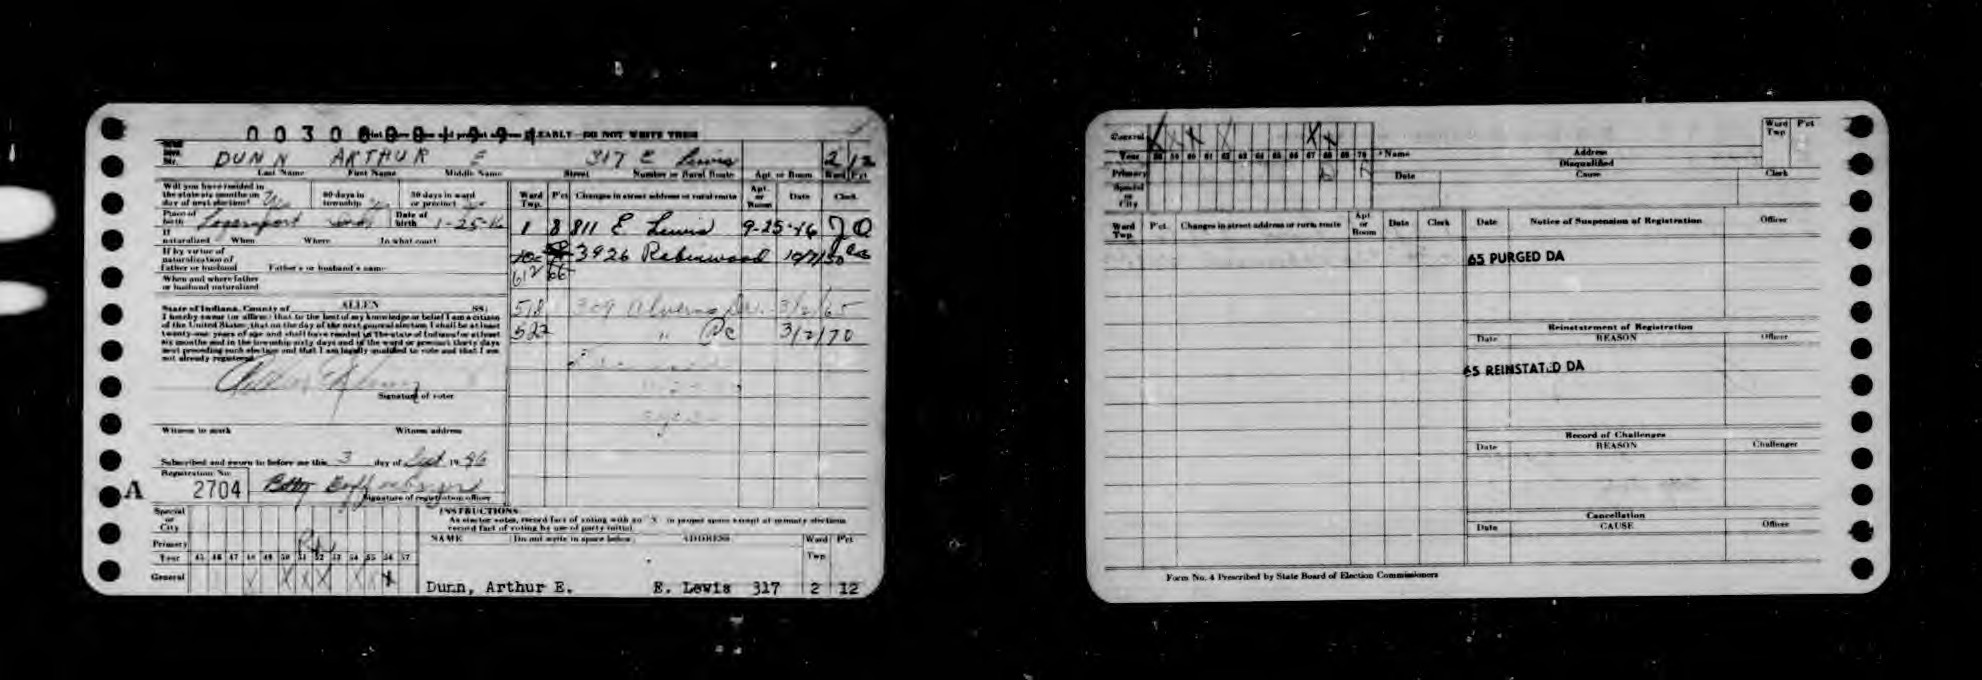 CLEARLY - DO NOT WRITE THEM
Mr. DUNN ARTHUR E 317 E Lewis 2 12
Last Name First Name Middle Name Street Number or Rural Route Apt. or Room Ward Pct
Will you have resided in
the state six months on
day of next election? Yes
60 days in
township
30 days in ward
or precinct
Place of
birth Logansport Ind
Date of
birth 1-25-16
If
naturalized When Where In what court
If by virtue of
naturalization of
father or husband Father's or husband's name
When and where father
or husband naturalized
Ward
Twp.
P'ct Changes in street address or rural route Apt.
or
Room
Date Clerk
1 8 811 E Lewis 9-25-46
3926 Robinwood 10/7/50
612 66
518 309 3/2/65
522 " 3/2/70
State of Indiana, County of ALLEN SS:
I hereby swear (or affirm) that to the best of my knowledge or belief I am a citizen
of the United States; that on the day of the next general election I shall be at least
twenty-one years of age and shall have resided in the state of Indiana for at least
six months and in the township sixty days and in the ward or precinct thirty days
next preceding such election and that I am legally qualified to vote and that I am
not already registered.
Signature of voter
Witness to mark Witness address
Subscribed and sworn to before me this 3 day of Sept 1946
Registration No.
A 2704 Betty
Signature of registration officer
Special
or
City
Primary
Year 45 46 47 48 49 50 51 52 53 54 55 56 57
General X X X X X X X
INSTRUCTIONS
As elector votes, record fact of voting with an "X" in proper space except at primary elections
record fact of voting by use of party initial.
NAME (Do not write in space below) ADDRESS Ward
Twp.
P'ct
Dunn, Arthur E. E. Lewis 317 2 12
General
Year 58 59 60 61 62 63 64 65 66 67 68 69 70
Primary
Special
or
City
Name Address Ward
Twp
P'ct
Disqualified
Date Cause Clerk
Ward
Twp.
P'ct Changes in street address or rural route Apt
or
Room
Date Clerk
Date Notice of Suspension of Registration Officer
65 PURGED DA
Reinstatement of Registration
Date REASON Officer
65 REINSTATED DA
Record of Challenges
Date REASON Challenger
Cancellation
Date CAUSE Officer
Form No. 4 Prescribed by State Board of Election Commissioners